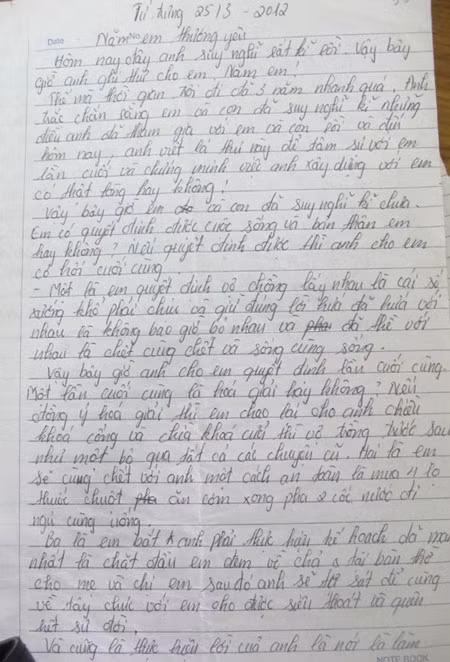 Tử hưng 25 | 3 - 2012
Date No
Năm em thương yêu
Hôm nay đây anh suy nghĩ rất kĩ rồi. Vậy bây
giờ anh ghi thư cho em, Năm em!
Thế mà thời gian trôi đi đã 3 năm nhanh quá, Anh
chắc chắn rằng em và con đã suy nghĩ kĩ những
điều anh đã tham gia với em và con rồi và đến
hôm nay, anh viết lá thư này để tâm sự với em
lần cuối và chứng minh việc anh xây dựng với em
có thật lòng hay không!
Vậy bây giờ em và con đã suy nghĩ kĩ chưa.
Em có quyết định được cuộc sống và bản thân em
hay không? Nếu quyết định được thì anh cho em
cơ hội cuối cùng.
- Một là em quyết định vợ chồng lấy nhau là cái số
sướng khổ phải chịu và giữ đúng lời hứa đã hứa với
nhau là không bao giờ bỏ nhau và đã thề với
nhau là chết cùng chết và sống cùng sống.
Vậy bây giờ anh cho em quyết định lần cuối cùng.
Một lần cuối cùng là hoà giải hay không? Nếu
đồng ý hoà giải thì em trao lại cho anh chiều
khoa cổng và chìa khoá cưới thì vợ chồng trước sau
như một bỏ qua tất cả các chuyện cũ. Hai là em
sẽ cùng chết với anh một cách an toàn là mua 4 lọ
thuốc chuột ăn cơm xong pha 2 cốc nước đi
ngủ cùng uống.
Ba là em bắt anh phải thực hiện kế hoạch dã man
nhất là chặt đầu em đem về chả tại bàn thờ
cho mẹ và chị em sau đó anh sẽ tự sát để cùng
về tây chúc với em cho được siêu thoát và quên
hết sự đời.
Và cũng là thực hiện lời của anh là nói là làm
NOTE BOOK